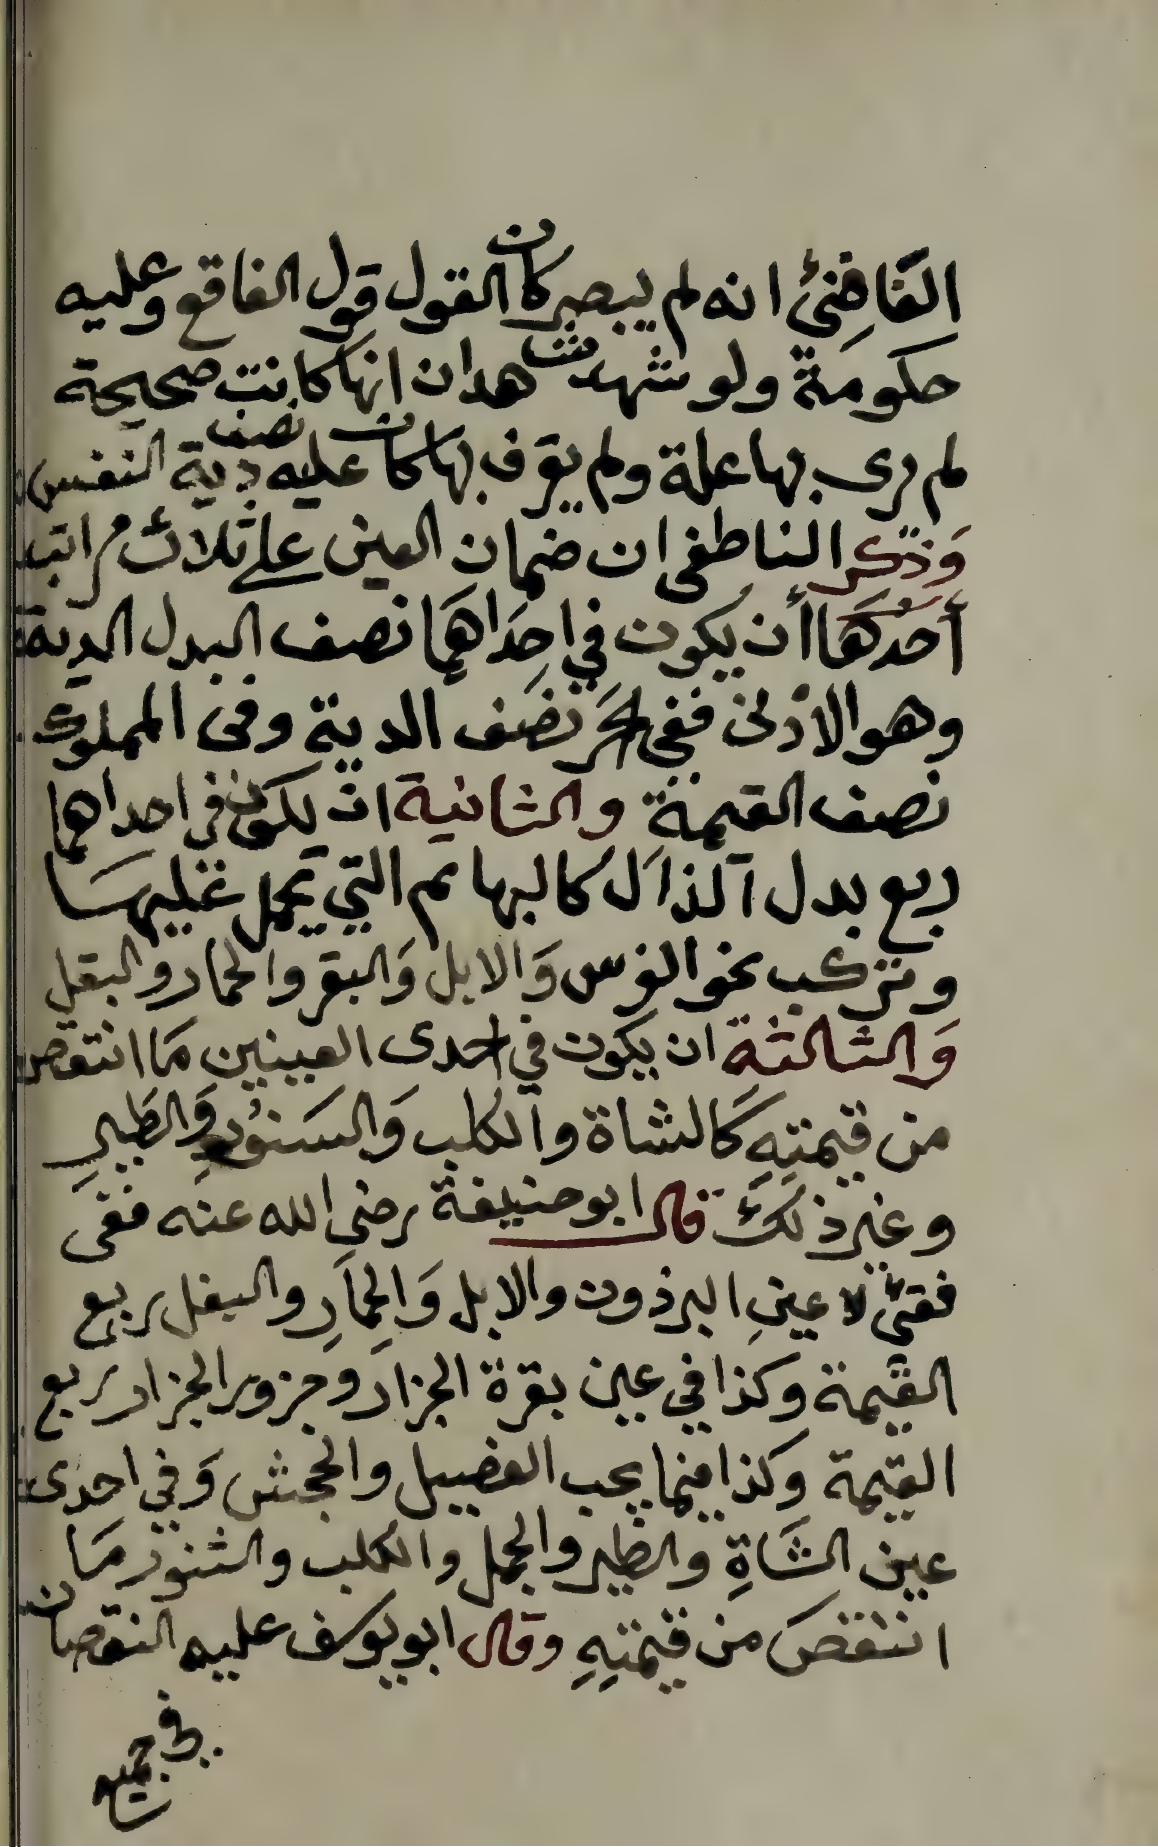 القاضي انه لم يبصر كان القول قول الفاقع وعليه
حكومة ولو شهدت هدان انها كانت صحيحة
لم يرى بها علة ولم يعرف بها كان عليه نصف دية النفس
وذكر الناطفى ان ضمان العين على ثلاث مراتب
أحدها أن يكون في احداهما نصف البدل الدية
وهو الادنى ففى الحر نصف الدية وفى المملوك
نصف القيمة والثانية ان يكون في احداهما
ربع بدل كالبهائم التي تحمل عليها
وتركب نحو الفرس والابل والبقر والحمار والبغل
والثالثة ان يكون في احدى العينين ما انتقص
من قيمته كالشاة والكلب والسنور والطير
وغير ذلك قال ابو حنيفة رضى الله عنه ففى
فقئ لاعين البرذون والابل والحمار والبغل ربع
القيمة وكذا في عين بقرة الجزار وجزور الجزار ربع
القيمة وكذا فيما يجب الفصيل والجحش وفي احدى
عين الشاة والطير والجمل والكلب والسنور ما
انتقص من قيمته وقال ابو يوسف عليه النقصان
في جميع